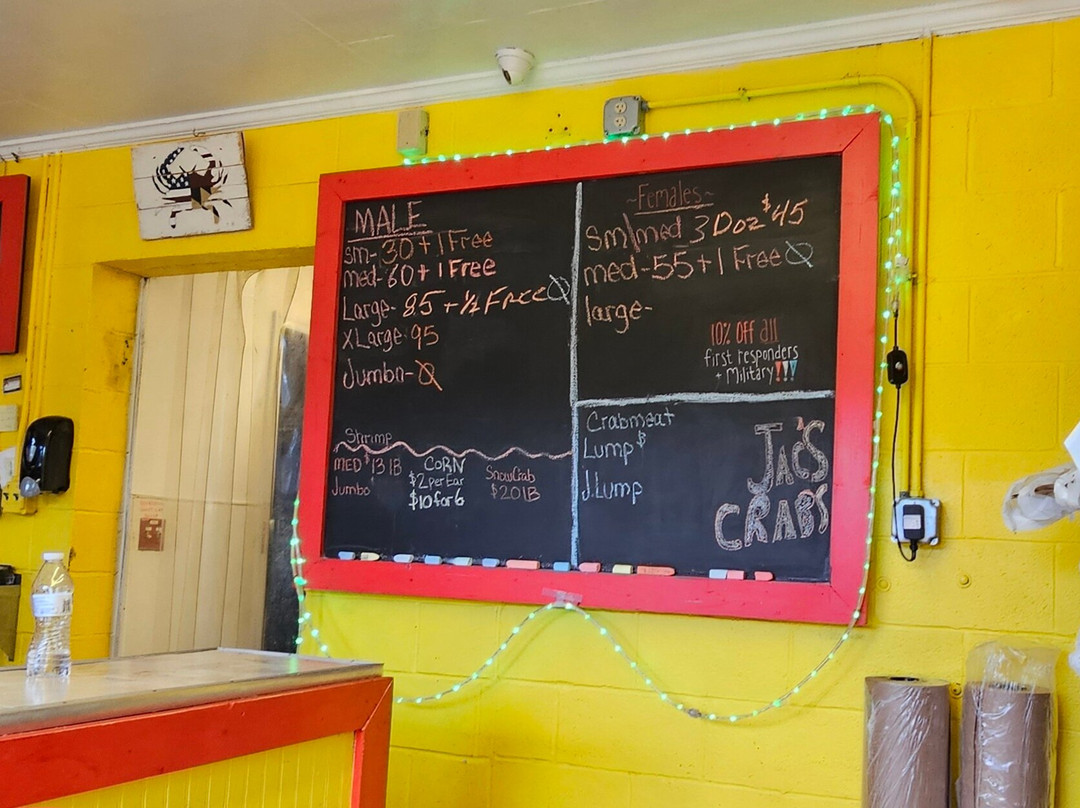 MALE
sm- 30 + 1 Free
med- 60 + 1 Free
Large- 85 + ½ Free Ø
XLarge- 95
Jumbo- Ø
Shrimp
MED $13 lB
Jumbo
CORN
$2 per Ear
$10 for 6
SnowCrab
$20 lB
~Females~
Sm/med 3 Doz $45
med- 55 + 1 Free Ø
large-
10% OFF all
first responders
+ Military!!!
Crabmeat
Lump $
J.Lump
JAC'S
CRABS